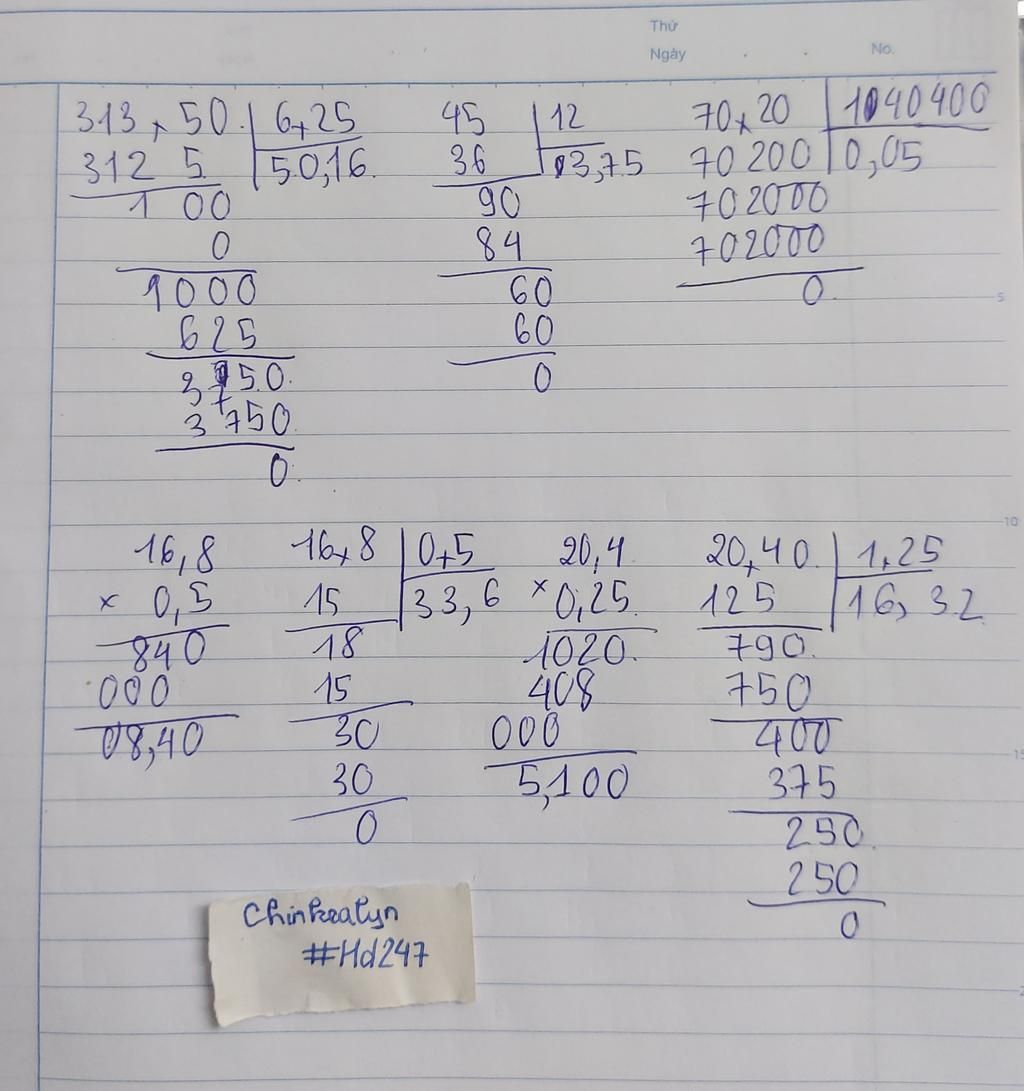 Thứ
Ngày . . No.
313,50 6,25 45 12 70,20 1040400
312 5 50,16 36 3,75 70200 0,05
1 00 90 702000
0 84 702000
1000 60 0
625 60
3750 0
3750
0
16,8 16,8 0,5 20,4 20,40 1,25
× 0,5 15 33,6 × 0,25 125 16,32
840 18 1020 790
000 15 408 750
08,40 30 000 400
30 5,100 375
0 250
250
0
Chinkralyn
#Hd247
5
10
15